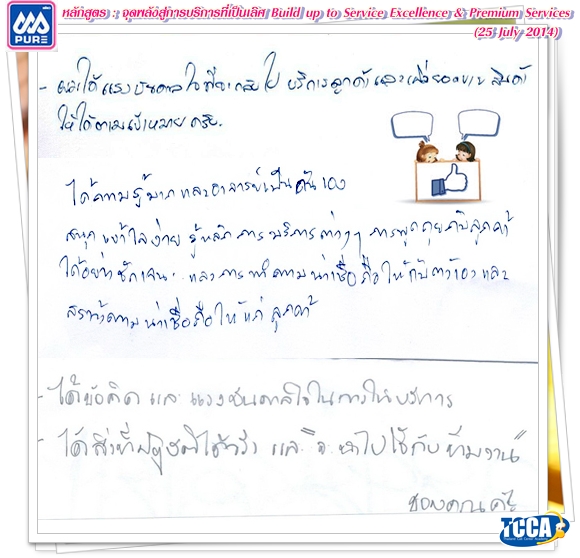 หลักสูตร : จุดพลังสู่การบริการที่เป็นเลิศ Build up to Service Excellence & Premium Services
(25 July 2014)
PURE
- และได้แรงบันดาลใจที่จะกลับไป บริการลูกค้าและเพื่อยอดขาย สินค้า
ให้ได้ตามเป้าหมาย ครับ.
ได้ความรู้มาก และอาจารย์เป็นกันเอง
สนุก เข้าใจง่าย รู้หลักการบริการต่างๆ การพูดคุยกับลูกค้า
ได้อย่างชัดเจน. และการทำความน่าเชื่อถือให้กับตัวเองและ
สร้างความน่าเชื่อถือให้แก่ลูกค้า
- ได้ข้อคิด และ แรงบันดาลใจในการให้บริการ
- ได้สิ่งที่ปฏิบัติได้จริง และ จะนำไปใช้กับทีมงาน
ขอบคุณค่ะ
TCCA